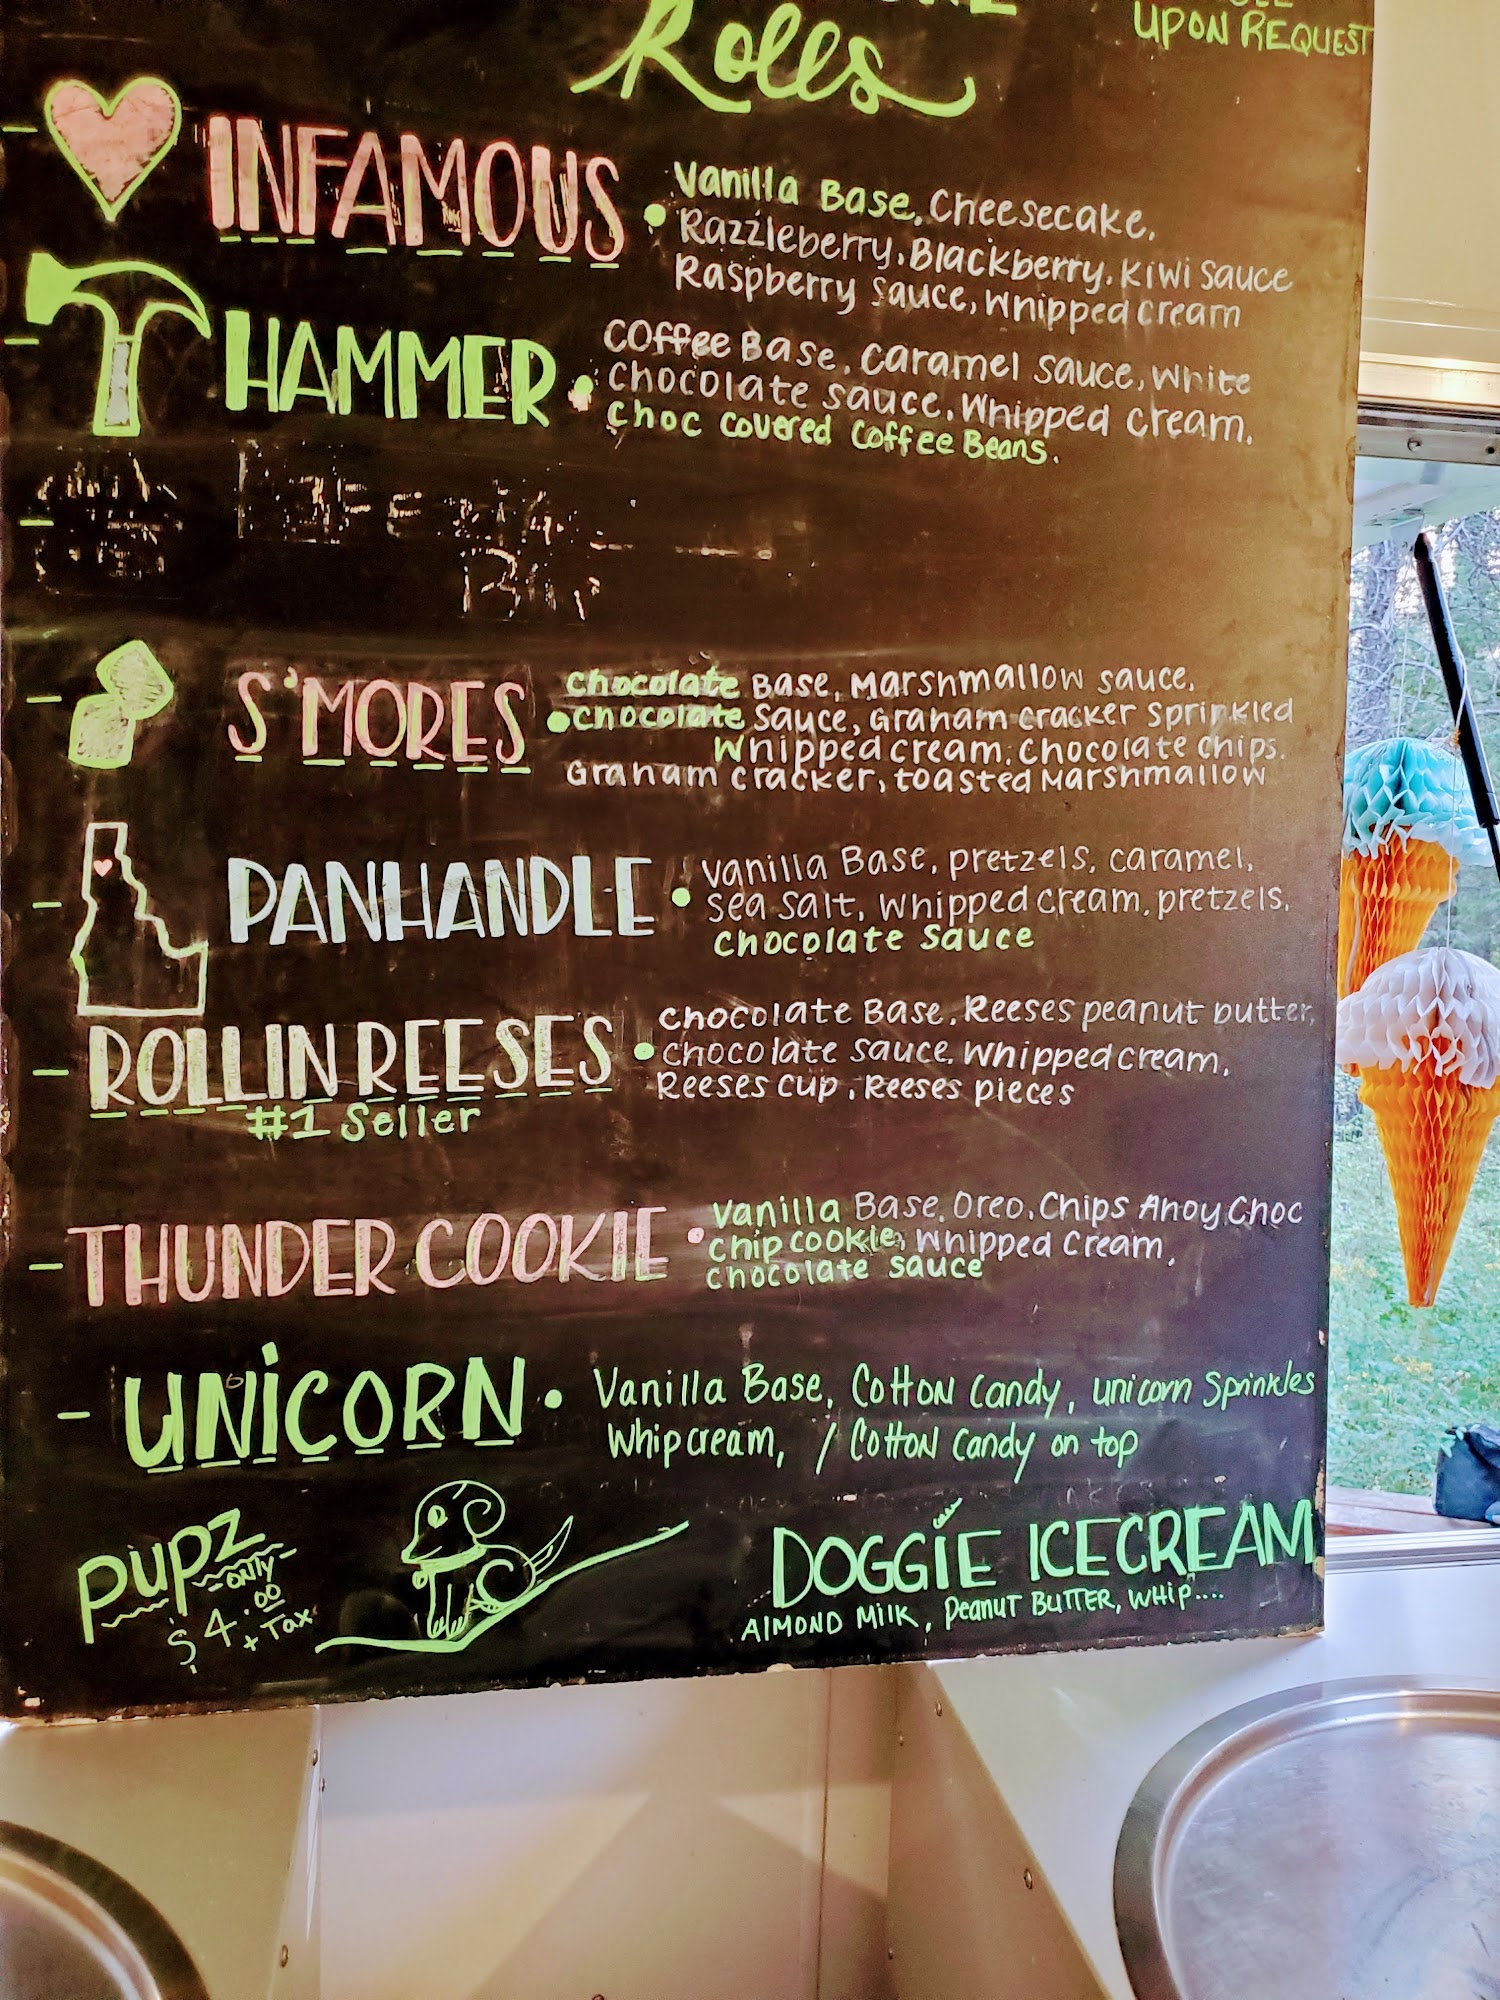 Rolls
UPON REQUEST
INFAMOUS
Vanilla Base, Cheesecake,
Razzleberry, Blackberry, Kiwi Sauce
Raspberry Sauce, Whipped Cream
HAMMER
Coffee Base, Caramel Sauce, White
Chocolate Sauce, Whipped Cream,
Choc covered Coffee Beans.
S'MORES
Chocolate Base, Marshmallow sauce,
Chocolate Sauce, Graham cracker Sprinkled
Whipped cream, Chocolate chips,
Graham cracker, toasted Marshmallow
PANHANDLE
Vanilla Base, pretzels, caramel,
sea salt, whipped cream, pretzels,
Chocolate Sauce
ROLLIN REESES
#1 Seller
Chocolate Base, Reeses peanut butter,
Chocolate Sauce, Whipped cream,
Reeses cup, Reeses pieces
THUNDER COOKIE
Vanilla Base, Oreo, Chips Ahoy Choc
chip cookie, Whipped Cream,
Chocolate Sauce
UNICORN
Vanilla Base, Cotton Candy, unicorn Sprinkles
Whip cream, / Cotton Candy on top
pupz
-only-
$4.00
+ Tax
DOGGIE ICE CREAM
Almond Milk, Peanut Butter, Whip....